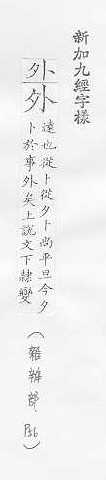 新加九經字樣
外外
遠也從卜從夕卜尚平旦今夕
卜於事外矣上說文下隸變
(雜辨部、P56)